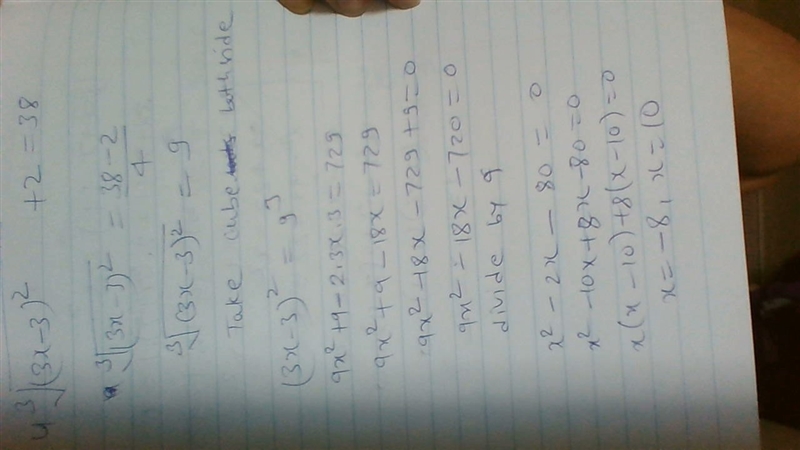 4∛(3x-3)² +2 = 38
∛(3x-3)² = (38-2)/4
∛(3x-3)² = 9
Take cube both side
(3x-3)² = 9³
9x²+9-2.3x.3 = 729
9x²+9-18x = 729
9x²-18x-729+9=0
9x²-18x-720=0
divide by 9
x²-2x-80=0
x²-10x+8x-80=0
x(x-10)+8(x-10)=0
x=-8, x=10